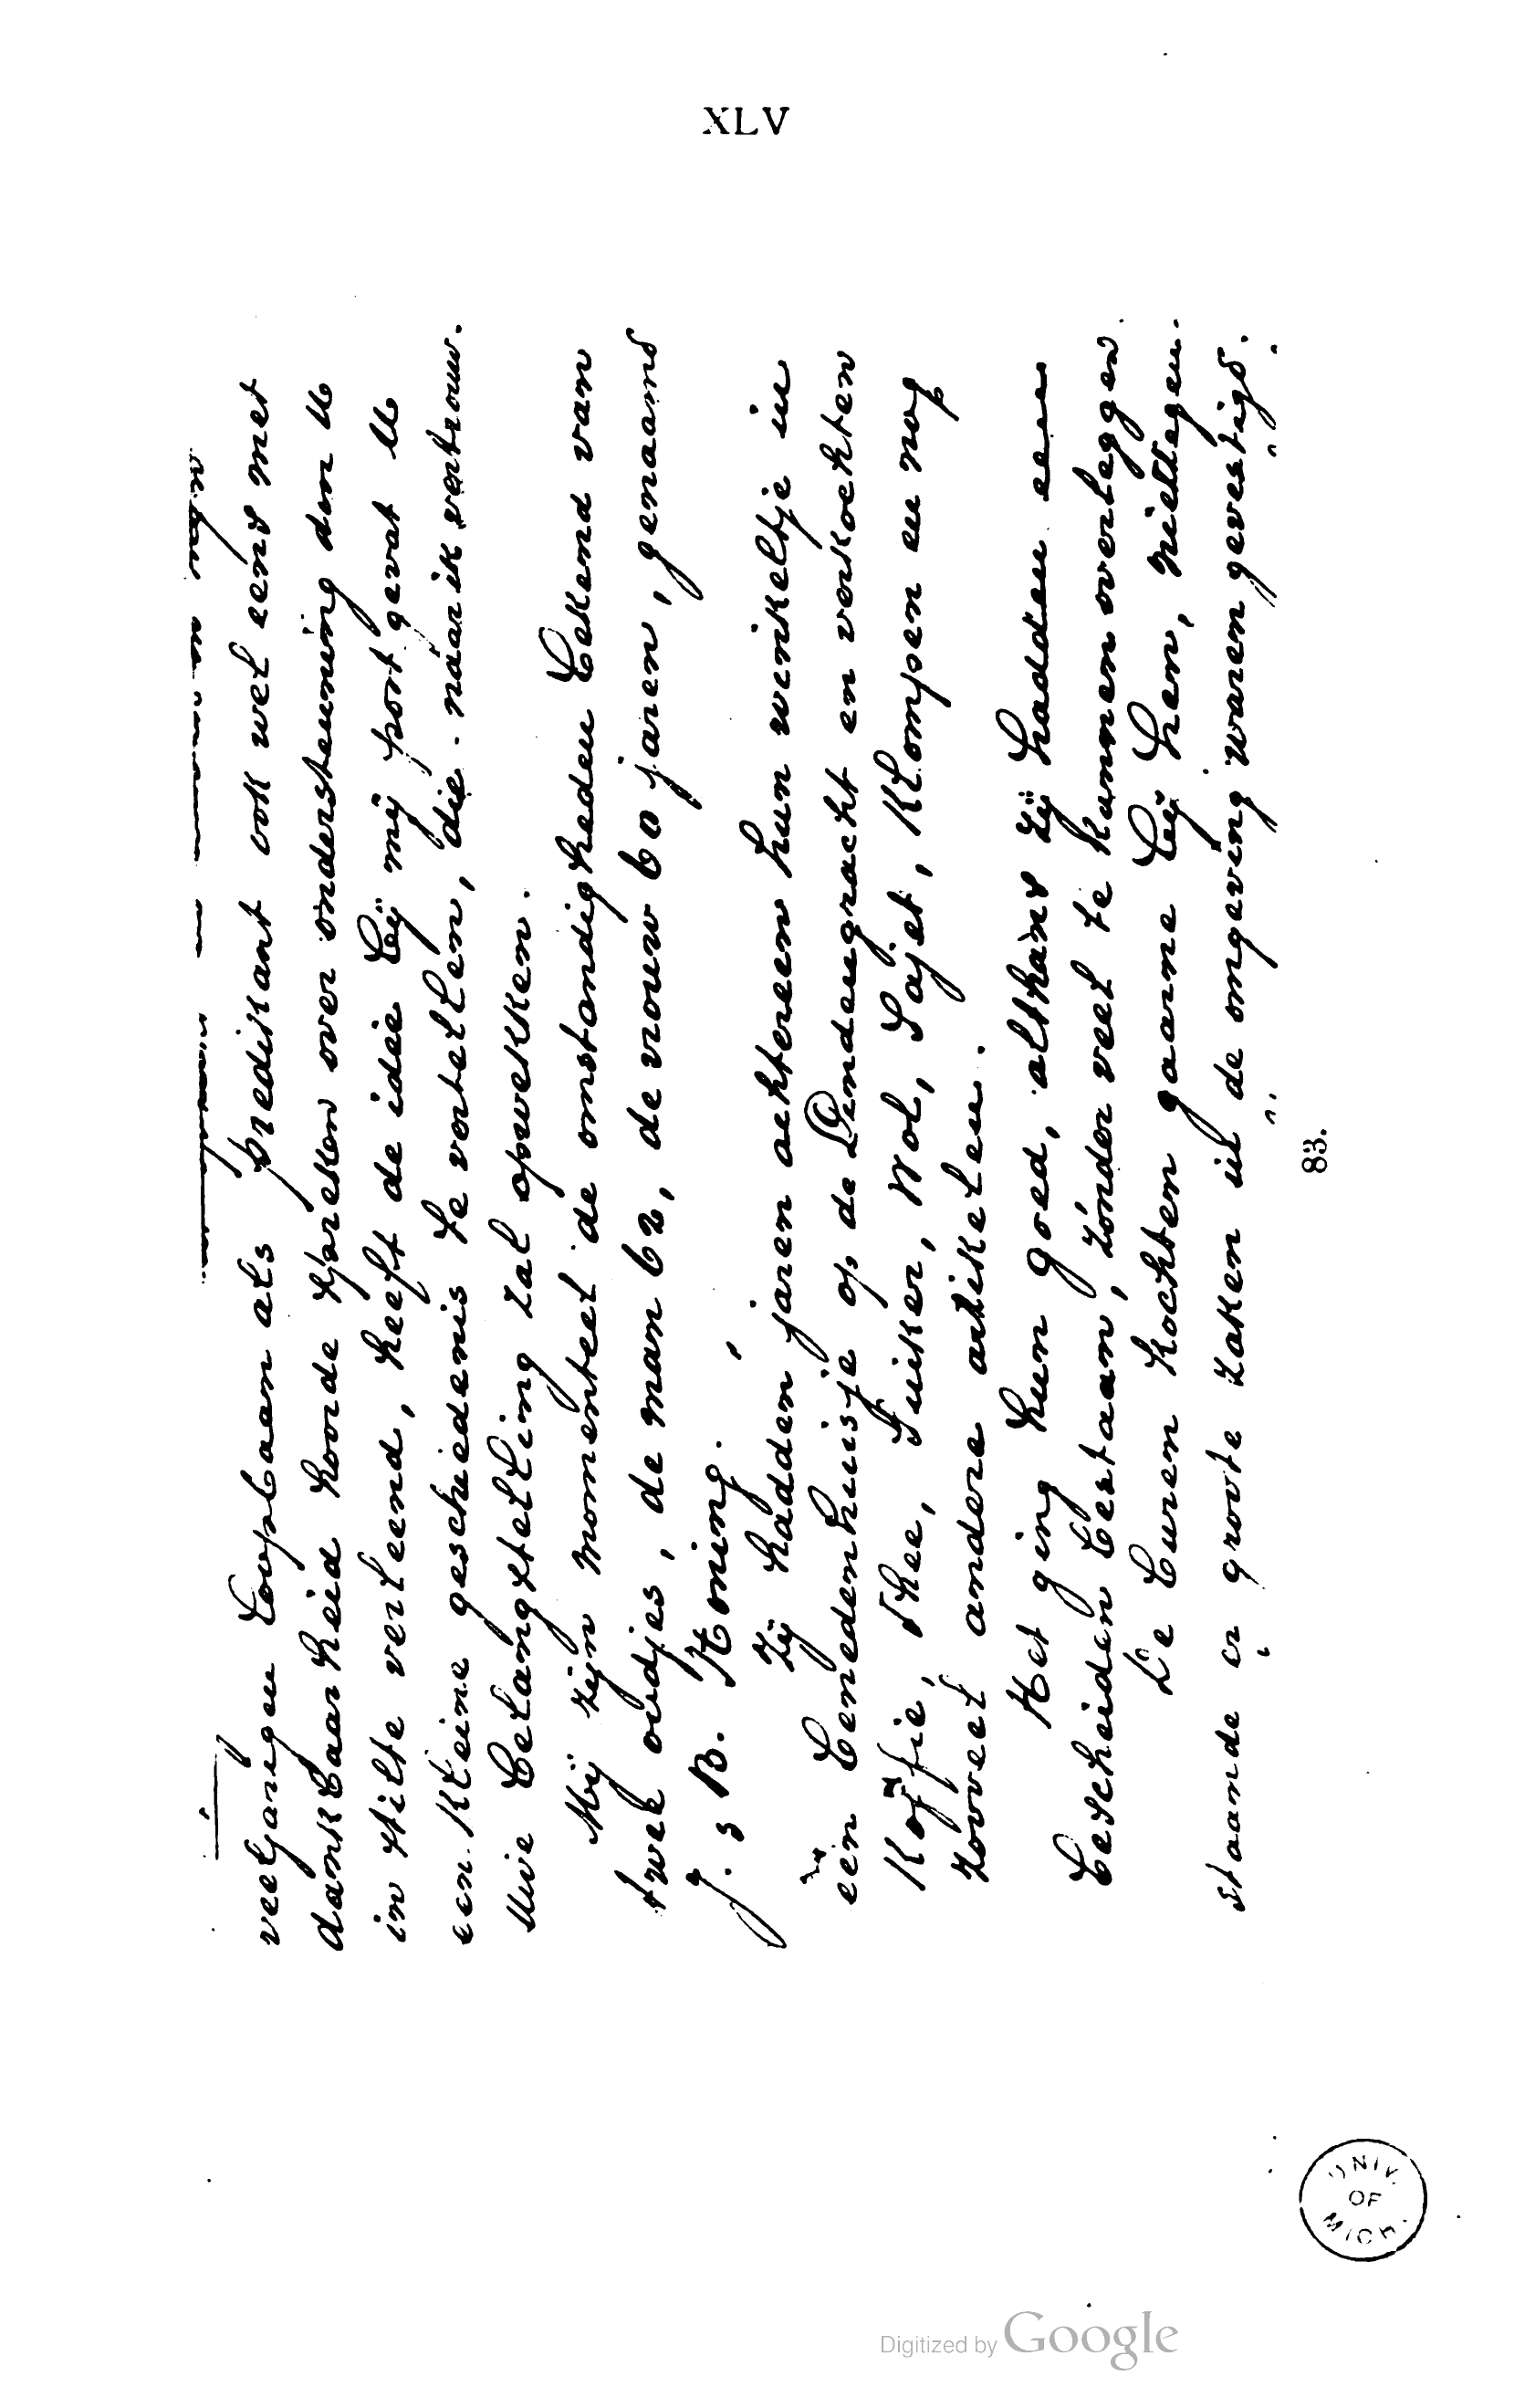 XLV
veeljarigen loopbaan als predikant ook wel eens met
dankbaarheid hoorde spreken over ondersteuning den U
in stilte verleend, heeft de idée bij mij post gevat U
een kleine geschiedenis te vertellen, die naar ik vertrouw
Uwe belangstelling zal opwekken.
Mij zijn momenteel de omstandigheden bekend van
twee oudjes, de man 62, de vrouw 60 jaren, genaamd
J. B. Koning.
Zij hadden jaren achtereen hun winkeltje in
een benedenhuisje op de Lindengracht en verkochten
Koffie, Thee, Suiker, Wol, Sajet, Klompen en nog
zooveel andere artikelen.
Het ging hun goed, althans zij hadden een
bescheiden bestaan, zonder veel te kunnen overleggen.
De buren kochten gaarne bij hen, niettegen-
staande er groote zaken in de omgeving waren gevestigd.
83.
UNIV. OF MICH.
Digitized by Google